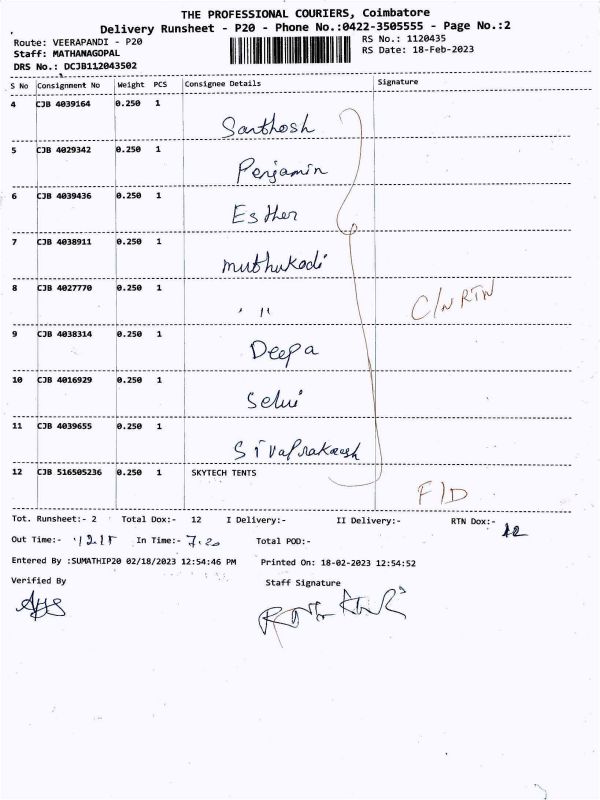 THE PROFESSIONAL COURIERS, Coimbatore
Delivery Runsheet - P20 - Phone No.:0422-3505555 - Page No.:2
Route: VEERAPANDI - P20
RS No.: 1120435
Staff: MATHANAGOPAL
RS Date: 18-Feb-2023
DRS No.: DCJB112043502
S No Consignment No Weight PCS Consignee Details Signature
4 CJB 4039164 0.250 1
Santhosh
5 CJB 4029342 0.250 1
Penjamin
6 CJB 4039436 0.250 1
Esther
7 CJB 4038911 0.250 1
muthukodi
8 CJB 4027770 0.250 1
" C/N RTN
9 CJB 4038314 0.250 1
Deepa
10 CJB 4016929 0.250 1
Selvi
11 CJB 4039655 0.250 1
Sivaprakash
12 CJB 516505236 0.250 1 SKYTECH TENTS
F/D
Tot. Runsheet:- 2 Total Dox:- 12 I Delivery:- II Delivery:- RTN Dox:- 12
Out Time:- 12.15 In Time:- 7.20 Total POD:-
Entered By :SUMATHIP20 02/18/2023 12:54:46 PM Printed On: 18-02-2023 12:54:52
Verified By Staff Signature